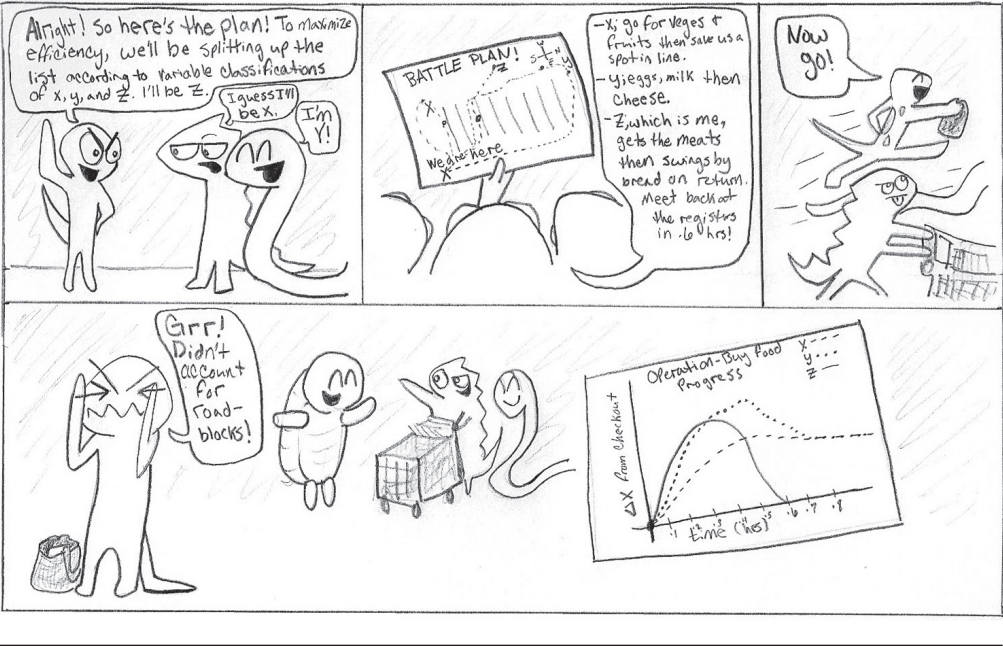 Alright! So here's the plan! To maximize
efficiency, we'll be splitting up the
list according to variable classifications
of x, y, and z. I'll be z.
I guess I'll
be x.
I'm
Y!
BATTLE PLAN!
Z
N
S
E
Y
X
We are here
X
-X; go for veges &
fruits then save us a
spot in line.
-y; eggs, milk then
cheese.
-Z, which is me,
gets the meats
then swings by
bread on return.
Meet back at
the registers
in .6 hrs!
Now
go!
Grr!
Didn't
account
for
road-
blocks!
Operation-Buy Food
Progress
X ---
y ...
z —
ΔX from checkout
.1 .2 .3 .4 .5 .6 .7 .8
time (hrs)